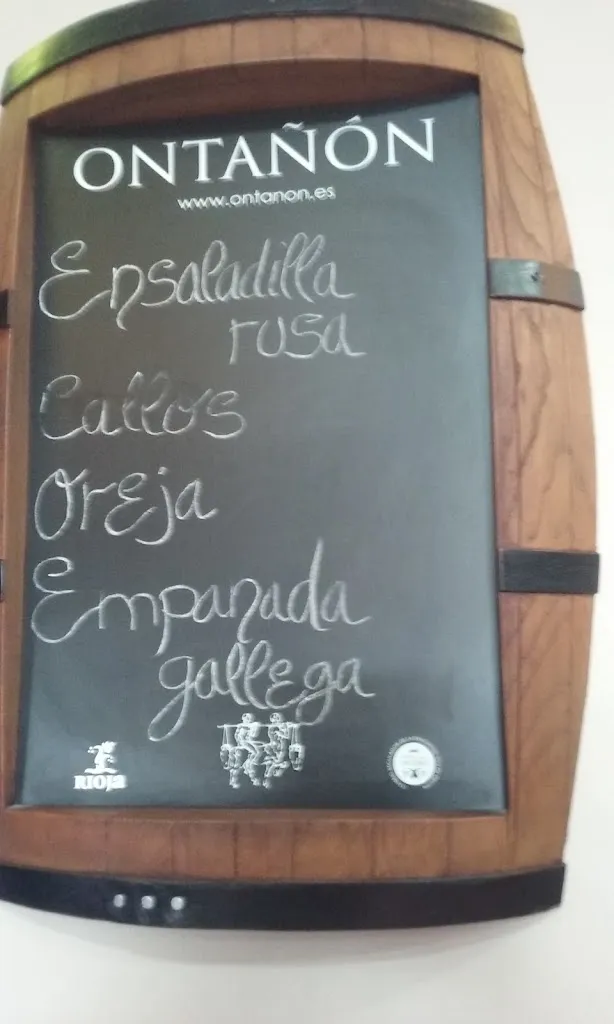 ONTAÑÓN
www.ontanon.es
Ensaladilla
rusa
Callos
Oreja
Empanada
gallega
RIOJA